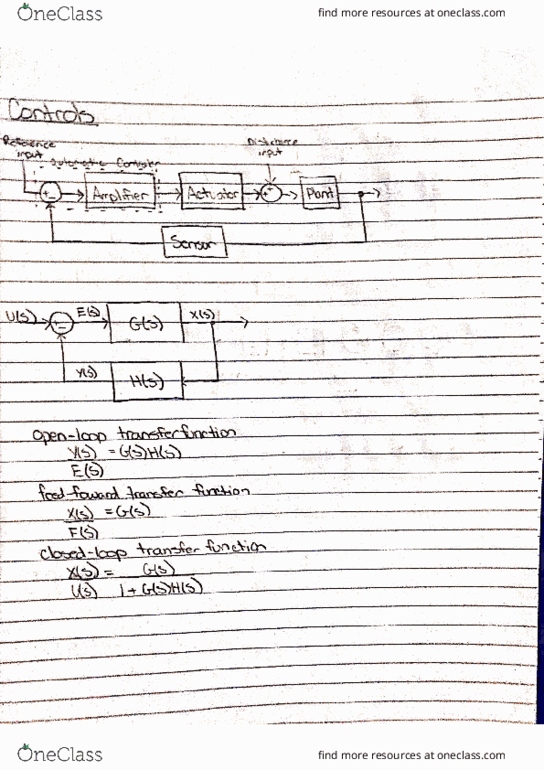 OneClass
find more resources at oneclass.com
Controls
Reference
input
Disturbance
input
Automatic Controller
Amplifier
Actuator
Plant
Sensor
U(s)
E(s)
G(s)
X(s)
Y(s)
H(s)
open-loop transfer function
Y(s) = G(s)H(s)
E(s)
feed-foward transfer function
X(s) = G(s)
F(s)
closed-loop transfer function
X(s) = G(s)
U(s) 1 + G(s)H(s)
OneClass
find more resources at oneclass.com